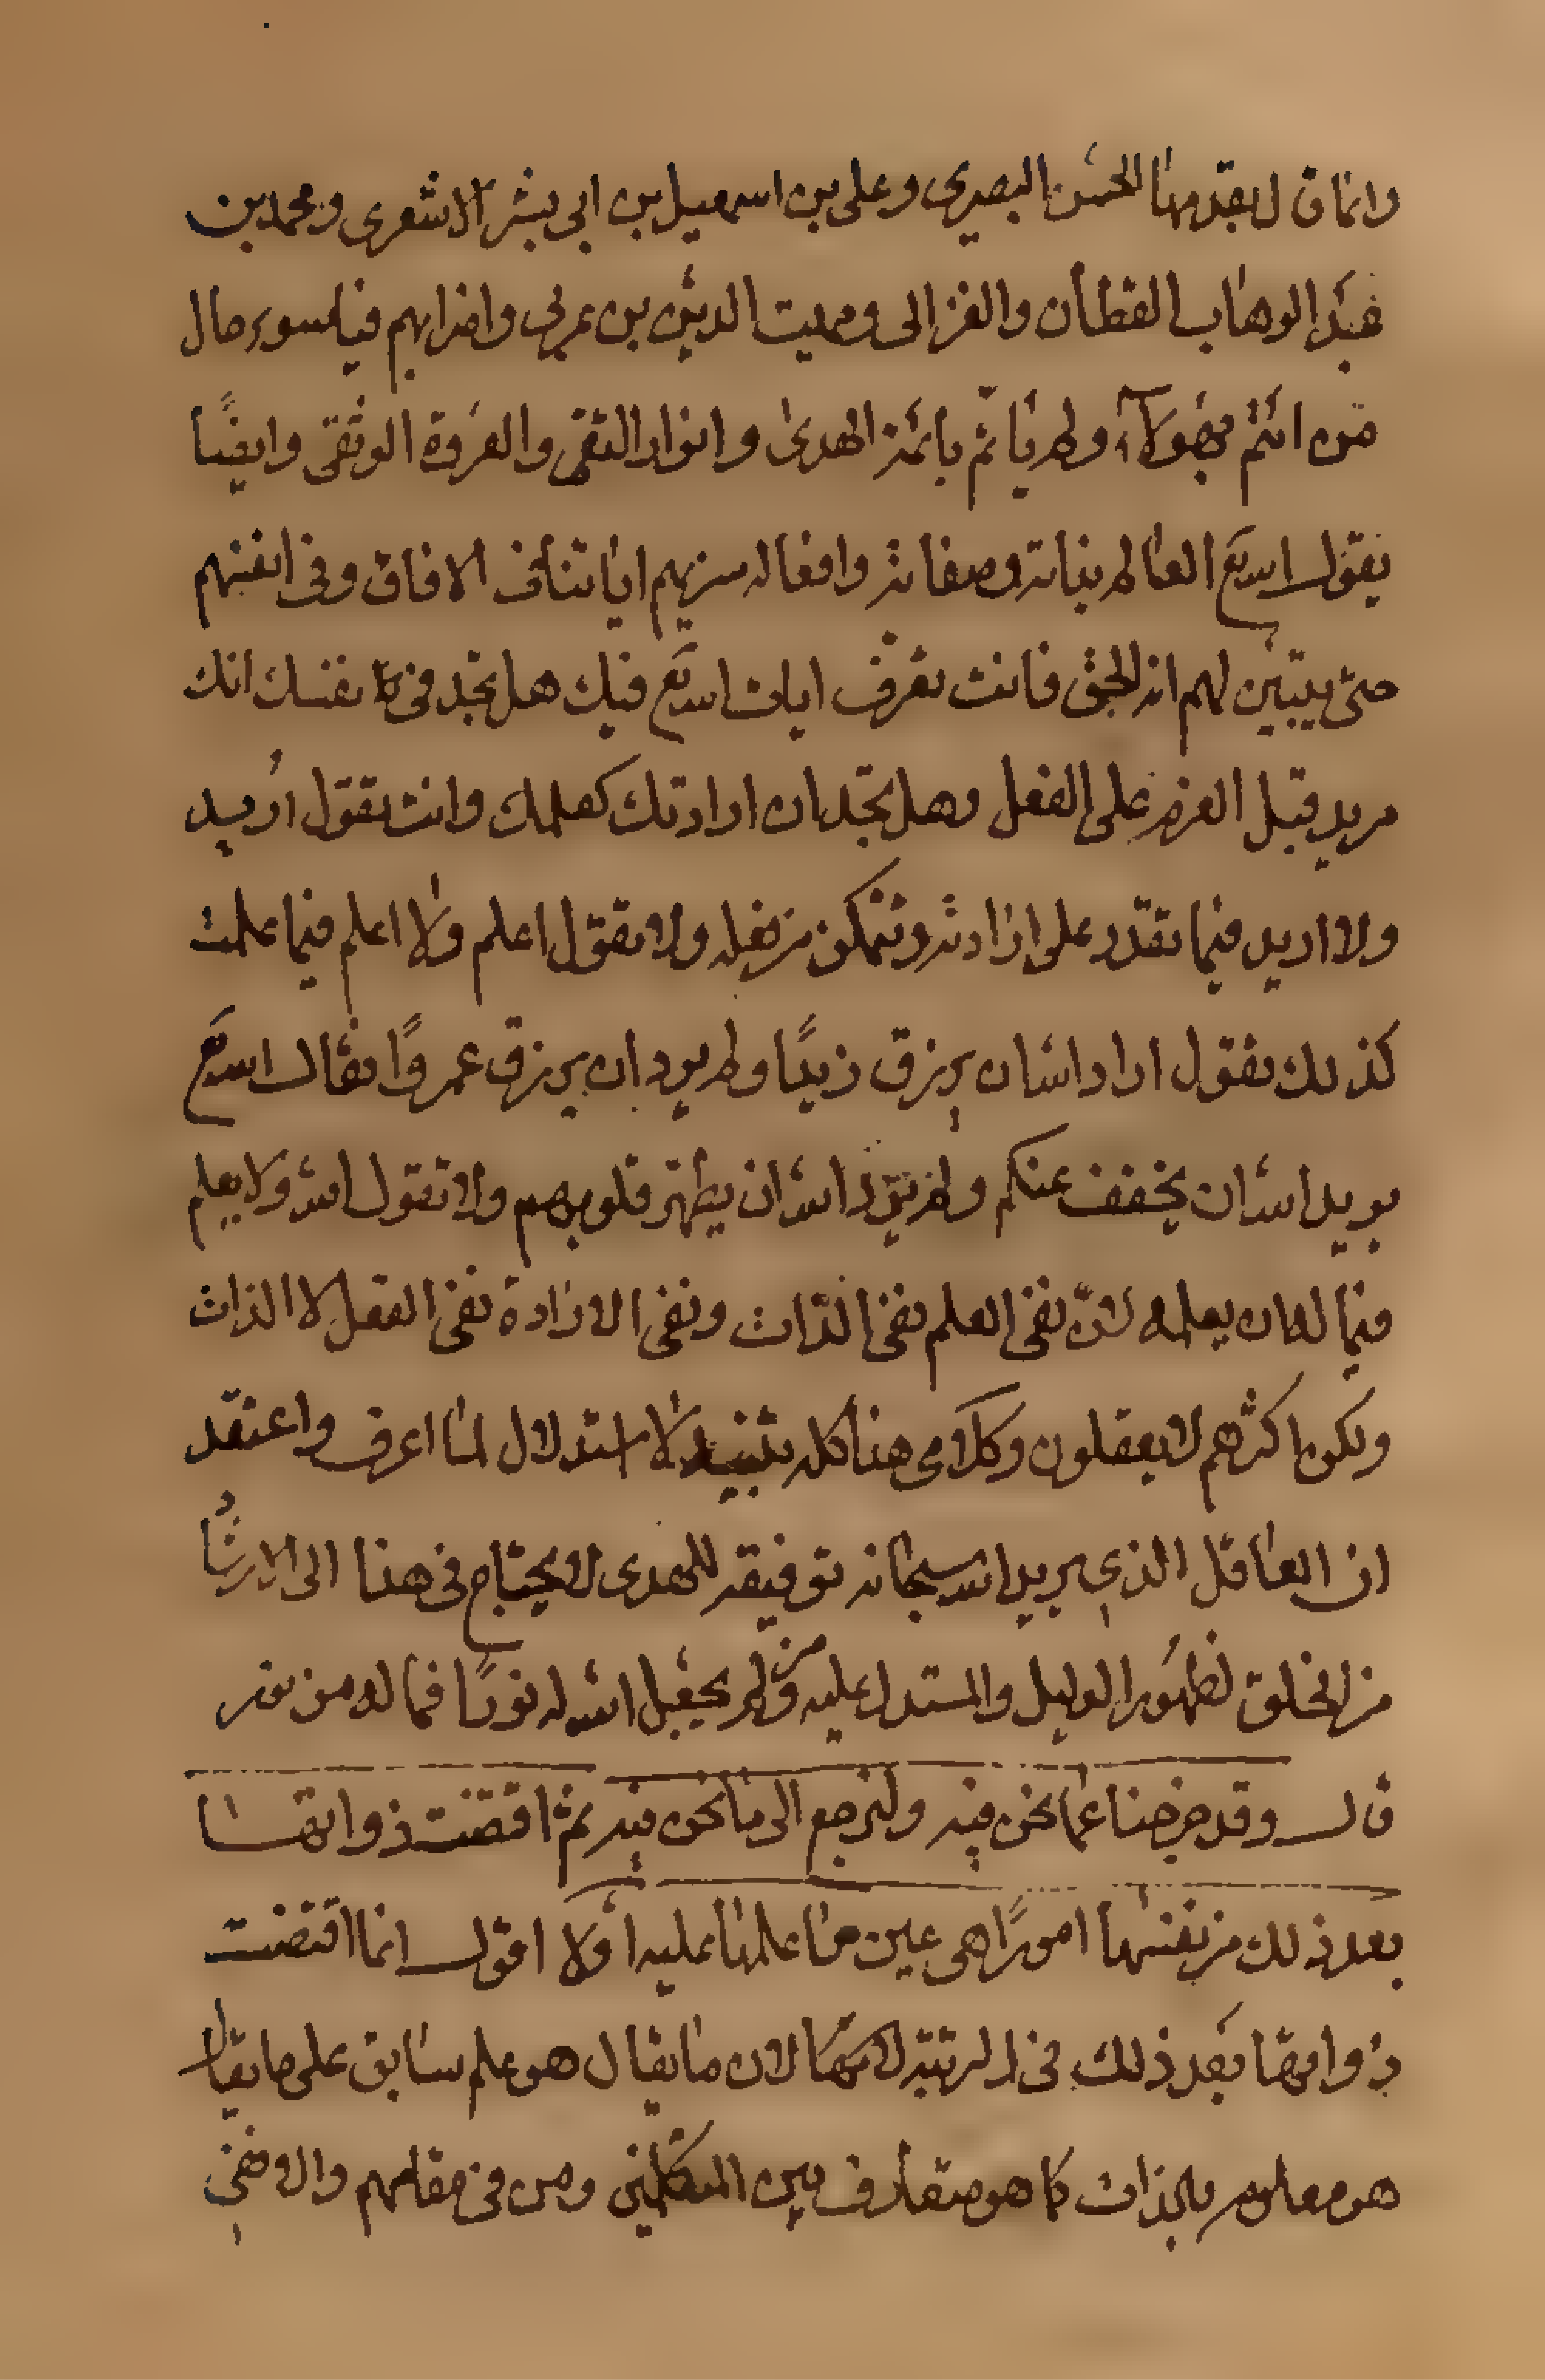 وانما قال بقدمها الحسن البصرى وعلى بن اسمعيل بن ابى بشر الاشعرى ومحمد بن
عبد الوهاب القطان والغزالى ومميت الدين بن عربى واضرابهم فيا سوء حال
من ائتم بهؤلاء ولم يأتم بائمة الهدى وانوار التقى والعروة الوثقى وايضًا
يقول الله تع العالم بذاته وصفاته وافعاله سنريهم اياتنا فى الافاق وفى انفسهم
حتى يتبين لهم انه الحق فانت تعرف ايات الله تع فيك هل تجد فى نفسك انك
مريد قبل العزم على الفعل وهل تجد ان ارادتك كعلمك وانت تقول اريد
ولا اريد فيما تقدر على ارادته وتتمكن من فعله ولا تقول اعلم ولا اعلم فيما علمت
كذلك تقول اراد الله ان يرزق زيدًا ولم يرد ان يرزق عمروًا فقال الله تع
يريد الله ان يخفف عنكم ولم يرد الله ان يطهر قلوبهم ولا تقول الله ولا يعلم
فيما له ان يعلمه لانّ نفى العلم نفى الذات ونفى الارادة نفى الفعل لا الذات
ولكن اكثرهم لا يعقلون وكلامى هذا كله تنبيه لا استدلال لما اعرف واعتقد
ان العاقل الذى يريد الله سبحانه توفيقه للهدى لا يحتاج فى هذا الى الارشاد
من الخلق لظهور الدليل والمستدل عليه ومن لم يجعل الله له نورًا فما له من نور
قال وقد خرجنا عما نحن فيه ولنرجع الى ما نحن فيه ثم اقتضت ذواتها
بعد ذلك من نفسها امورًا هى عين ما علمها عليه اولا اقول انما اقتضت
ذواتها بعد ذلك فى الرتبة لانها لان ما يقال هو علم سابق على ما يقال
هو معلوم بالذات كما هو متعارف بين المتكلمين ومن فى مقامهم والا ففى